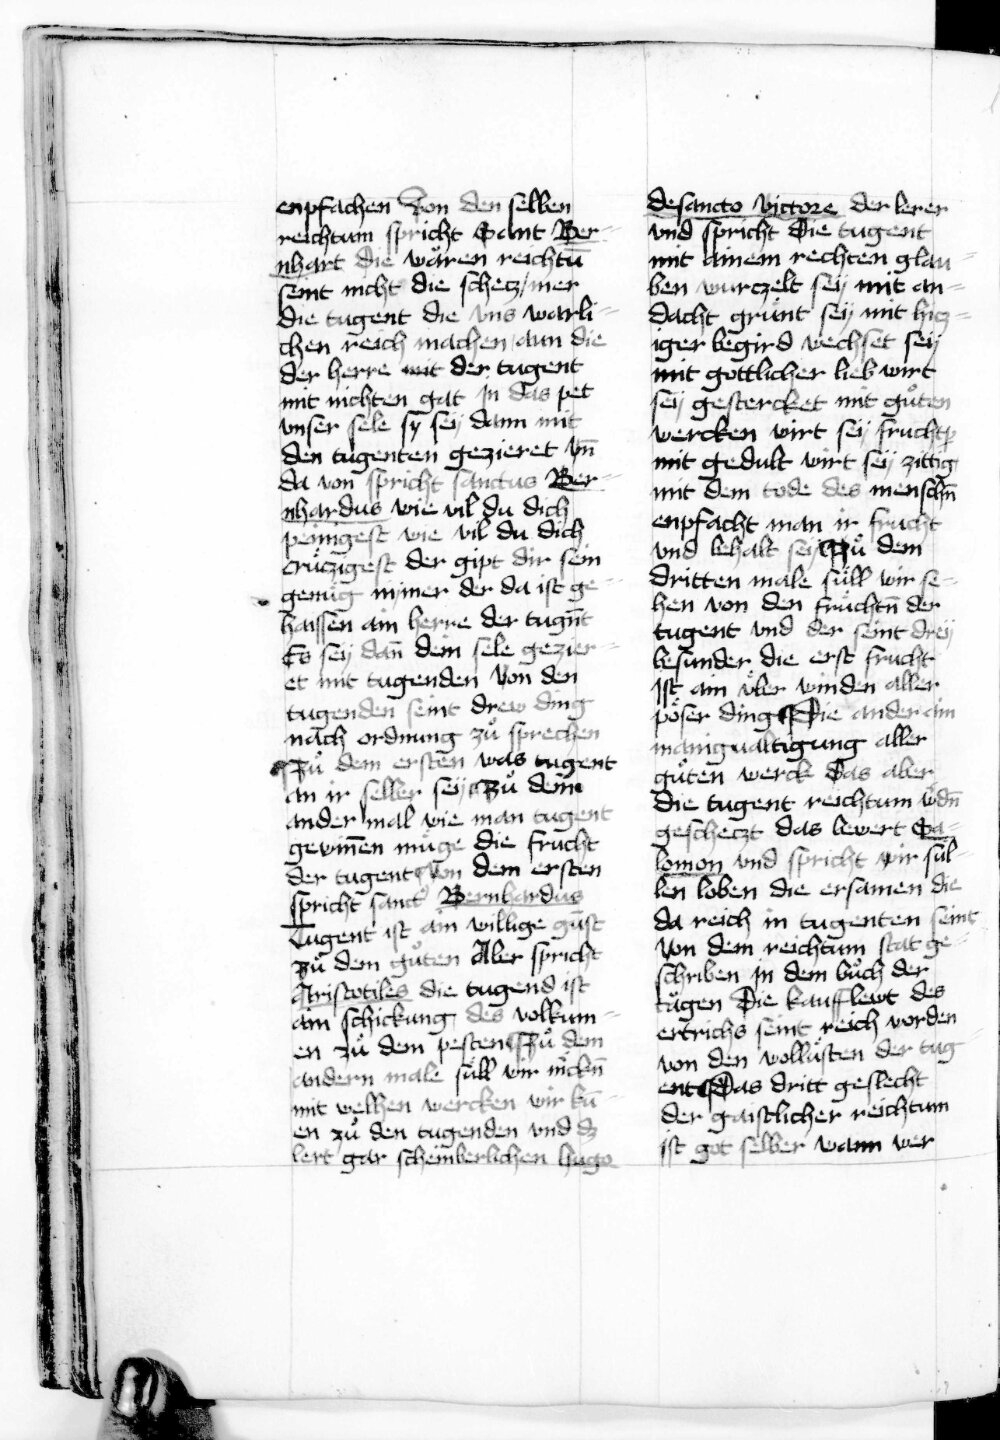 enpfachen Von den selben
reichtum spricht Sant Ber-
nhart die wären reichtū
seint nicht die schecz / mer
die tugent die vns warli-
chen reich machen / ann die
der herre mit der tugent
mit nichten gat In das pet
vnser sele sy seÿ dann mit
den tugenten gezieret vn̄
da von spricht sanctus Ber-
nhardus wie vil du dich
peinigest wie vil du dich
crüczigest der gipt dir sein
genůg nÿmer der da ist ge-
haissen ain herre der tugn̄t
Es seÿ dan̄ dein sele gezier-
et mit tugenden Von den
tugenden seint drew ding
nach ordnung zů sprechen
Zů dem ersten was tugent
an ir selber seÿ Zů dem
ander mal wie man tugent
gewin̄en müge die frucht
der tugent Von dem ersten
spricht sanct Bernhardus
Tugent ist ain willige gunst
zů dem gůten Aber spricht
Aristotiles die tugend ist
ain schickung des volkum-
en zů dem pesten Zů dem
andern male süll wir m̈ckn̄
mit welhen wercken wir ku-
en zů den tugenden vnd dz
lert gar scheinberlichen hugo
de sancto victore der lerer
vnd spricht Die tugent
mit ainem rechten glau-
ben wurczelt seÿ mit an-
dacht grünt seÿ mit hicz-
iger begird wechset seÿ
mit gottlicher lieb wirt
seÿ gestercket mit gůten
wercken wirt seÿ fruchtp̄
mit gedult wirt seÿ zittig
mit dem tode des menschn̄
enpfacht man ir frucht
vnd behalt seÿ Zů dem
dritten male süll wir se-
hen von den früchtn̄ der
tugent vnd der seint dreÿ
besunder die erst frucht
Ist ain v̈ber winden aller
pöser ding Die ander ain
manigualtigung aller
gůten werck Das aber
die tugent reichtum w̄dn̄
gescheczt das bewert Sa-
lomon vnd spricht wir sül-
len loben die ersamen die
da reich in tugenten seint
Von dem reichtum stat ge-
schriben In dem bůch der
tügen Die kaufflewt des
ertrichs seint reich worden
von den wollüsten der tug
ent Das dritt geslecht
der gaistlicher reichtum
ist got selber wann wer